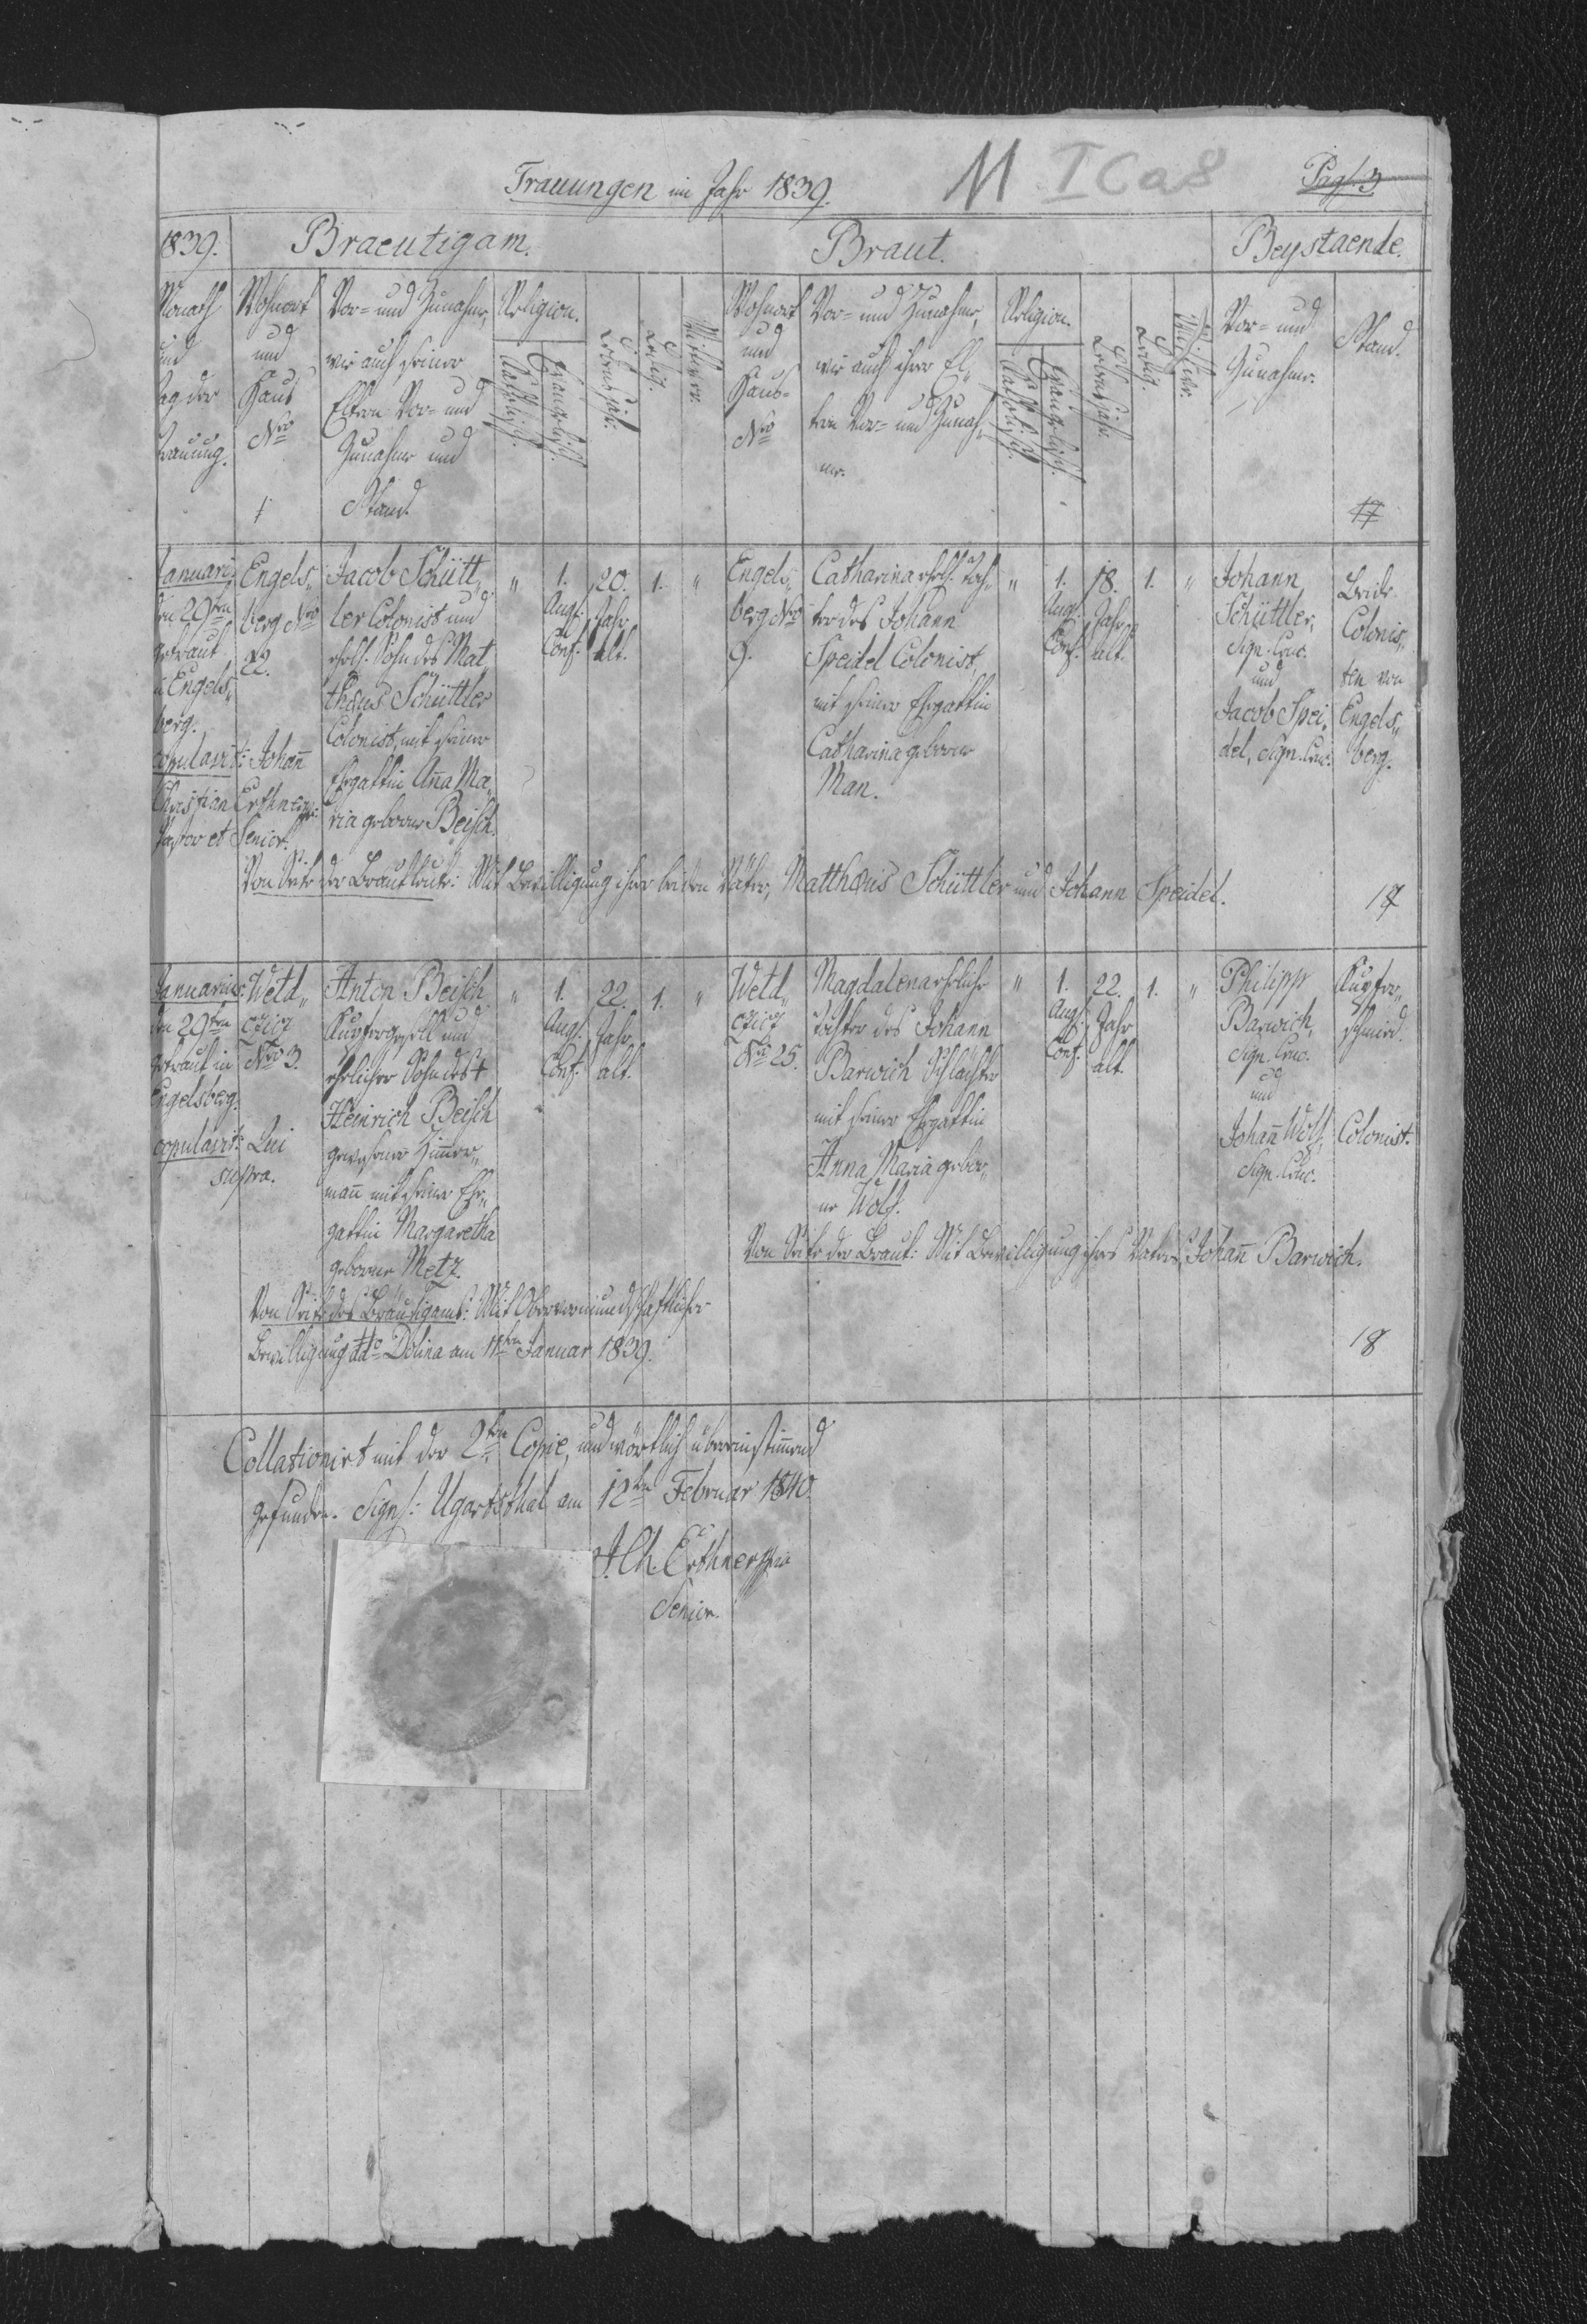 Trauungen im Jahr 1839.
M I C a 8
Pag. 3
1839.
Braeutigam.
Braut.
Beystaende.
Monath
und
Tag der
Trauung.
Wohnort
und
Haus
Nro
Vor- und Zunahme,
wie auch seiner
Eltern Vor- und
Zunahme und
Stand.
Religion.
Katholisch.
Evangelisch.
Lebensjahr.
Ledig.
Wittwer.
Wohnort
und
Haus-
Nro
Vor- und Zunahme,
wie auch ihrer El„
tern Vor- und Zunah„
me.
Religion.
Katholisch.
Evangelisch.
Lebensjahr.
Ledig.
Vor- und
Zunahme.
Stand.
17
Januari
den 29ten
getraut
in Engels„
berg.
copulavit: Johañ
Christian Erthner
Pastor et Senior.
Engels„
berg Nro
22.
Jacob Schütt„
ler Colonist und
ehel. Sohn des Mat„
thæus Schüttler
Colonist, mit seiner
Ehegattin Aña Ma„
ria geborne Beisch.
"
1.
Augs.
Conf.
20.
Jahr
alt.
1.
"
Engels„
berg Nro
9.
Catharina ehel. Toch„
ter des Johann
Speidel Colonist,
mit seiner Ehegattin
Catharina geborne
Man.
"
1.
Augs.
Conf.
18.
Jahr
alt.
1.
"
Johann
Schüttler,
Sign. Cruc.
und
Jacob Spei„
del, Sign. Cruc.
Beide
Colonis„
ten von
Engels„
berg.
Von Seite der Brautleute: Mit Bewilligung ihrer beiden Väter, Matthæus Schüttler und Johann Speidel.
17
Januarius
den 29ten
getraut in
Engelsberg.
copulavit: Qui
supra.
Weld„
Nro 3.
Anton Beisch
Kupfergesell und
ehelicher Sohn des †
Heinrich Beisch
gewesener Zimmer„
mañ mit seiner Ehe„
gattin Margaretha
geborne Metz.
"
1.
Augs.
Conf.
22.
Jahr
alt.
1.
"
Weld„
Nro 25.
Magdalena eheliche
Tochter des Johann
Barwich Schlächter
mit seiner Ehegattin
Anna Maria gebor„
ne Wolf.
"
1.
Augs.
Conf.
22.
Jahr
alt.
1.
"
Philipp
Barwich,
Sign. Cruc.
und
Johañ Wolf,
Sign. Cruc.
Kupfer„
schmied.
Colonist.
Von Seite der Braut: Mit Bewilligung ihres Vaters, Johañ Barwich.
Von Seite des Bräutigams: Mit Obervormundschaftlicher
Bewilligung ddo Dolina am 11ten Januar 1839.
18
Collationirt mit der 2ten Copie, und wörtlich übereinstimmend
gefunden. Sign: Ugartsthal am 12ten Februar 1840.
J. Ch. Erthner
Senior.